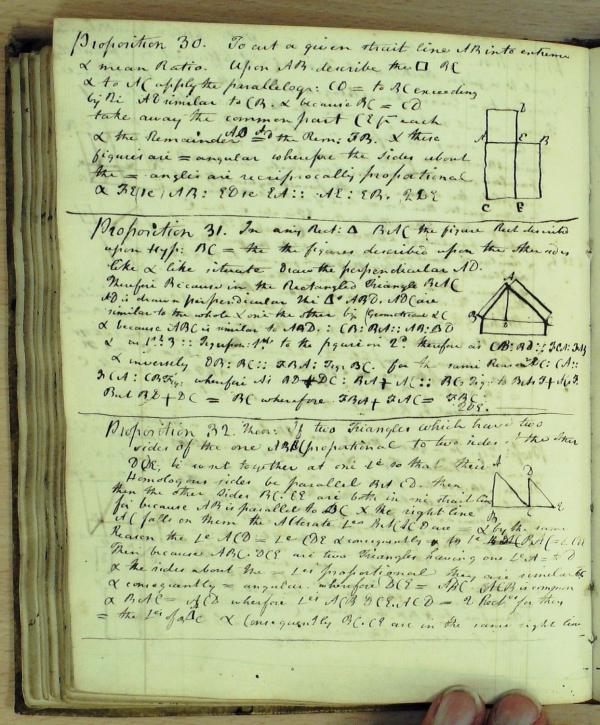 Proposition 30. To cut a given strait line AB into extreme
& mean Ratio. Upon AB describe the □ BC
& to AC apply the parallelogr: CD = to BC exceeding
by the AE similar to CB. & because BC = CD
take away the common part CE from each
& the Remainder AD = the Rem: FB. & these
figures are = angular wherefore the sides about
the = angles are reciprocally proportional
& FE ie AB: ED ie EA:: AE: EB. QDE
Proposition 31. In any Rect: Δ BAC the figure Rect described
upon Hyp: BC = the the figures described upon the other sides
like & like situate Draw the perpendicular AD.
Therefore Because in the Rectangled Triangle BAC
AD is drawn perpendicular the Δs ABD. ADC are
similar to the whole & one the other by
& because ABC is similar to ABD. : CB: BA:: AB: BD
& as 1st: 3:: fig upon 1st to the figure on 2d. therefore as CB: BD::
& inversly DB: BC:: FBA: Fig: BC. for the same Reason DC: CA::
wherefore As BD + DC: BA + AC:: BC Fig: to
But BD + DC = BC wherefore FBA + FAC = FBC.
QDE.
Proposition 32. Theor: If two Triangles which have two
sides of the one ABC proportional to two sides of the other
DCE, be sent together at one Le so that their
Homologous sides be parallel BA CD. then
then the other sides BC. CE are both in one strait line
for because AB is parallel to DC & the right line
AC falls on them the Alternate Les BAC ACD are = & by the same
Reason the Le ACD = Le CDE & consequently
Then because ABC. DCE are two Triangles having one Le A = to D
& the sides about the = Les proportional they are similar
& consequently = angular. wherefore DCE = ABC is common
& BAC = ACD wherefore Les ACB DCE. ACD = 2 Rect for they
= the Les of a Δ & consequently BC. CE are in the same right line
A
D
E
B
C
F
A
B
D
A
D
B
C
E